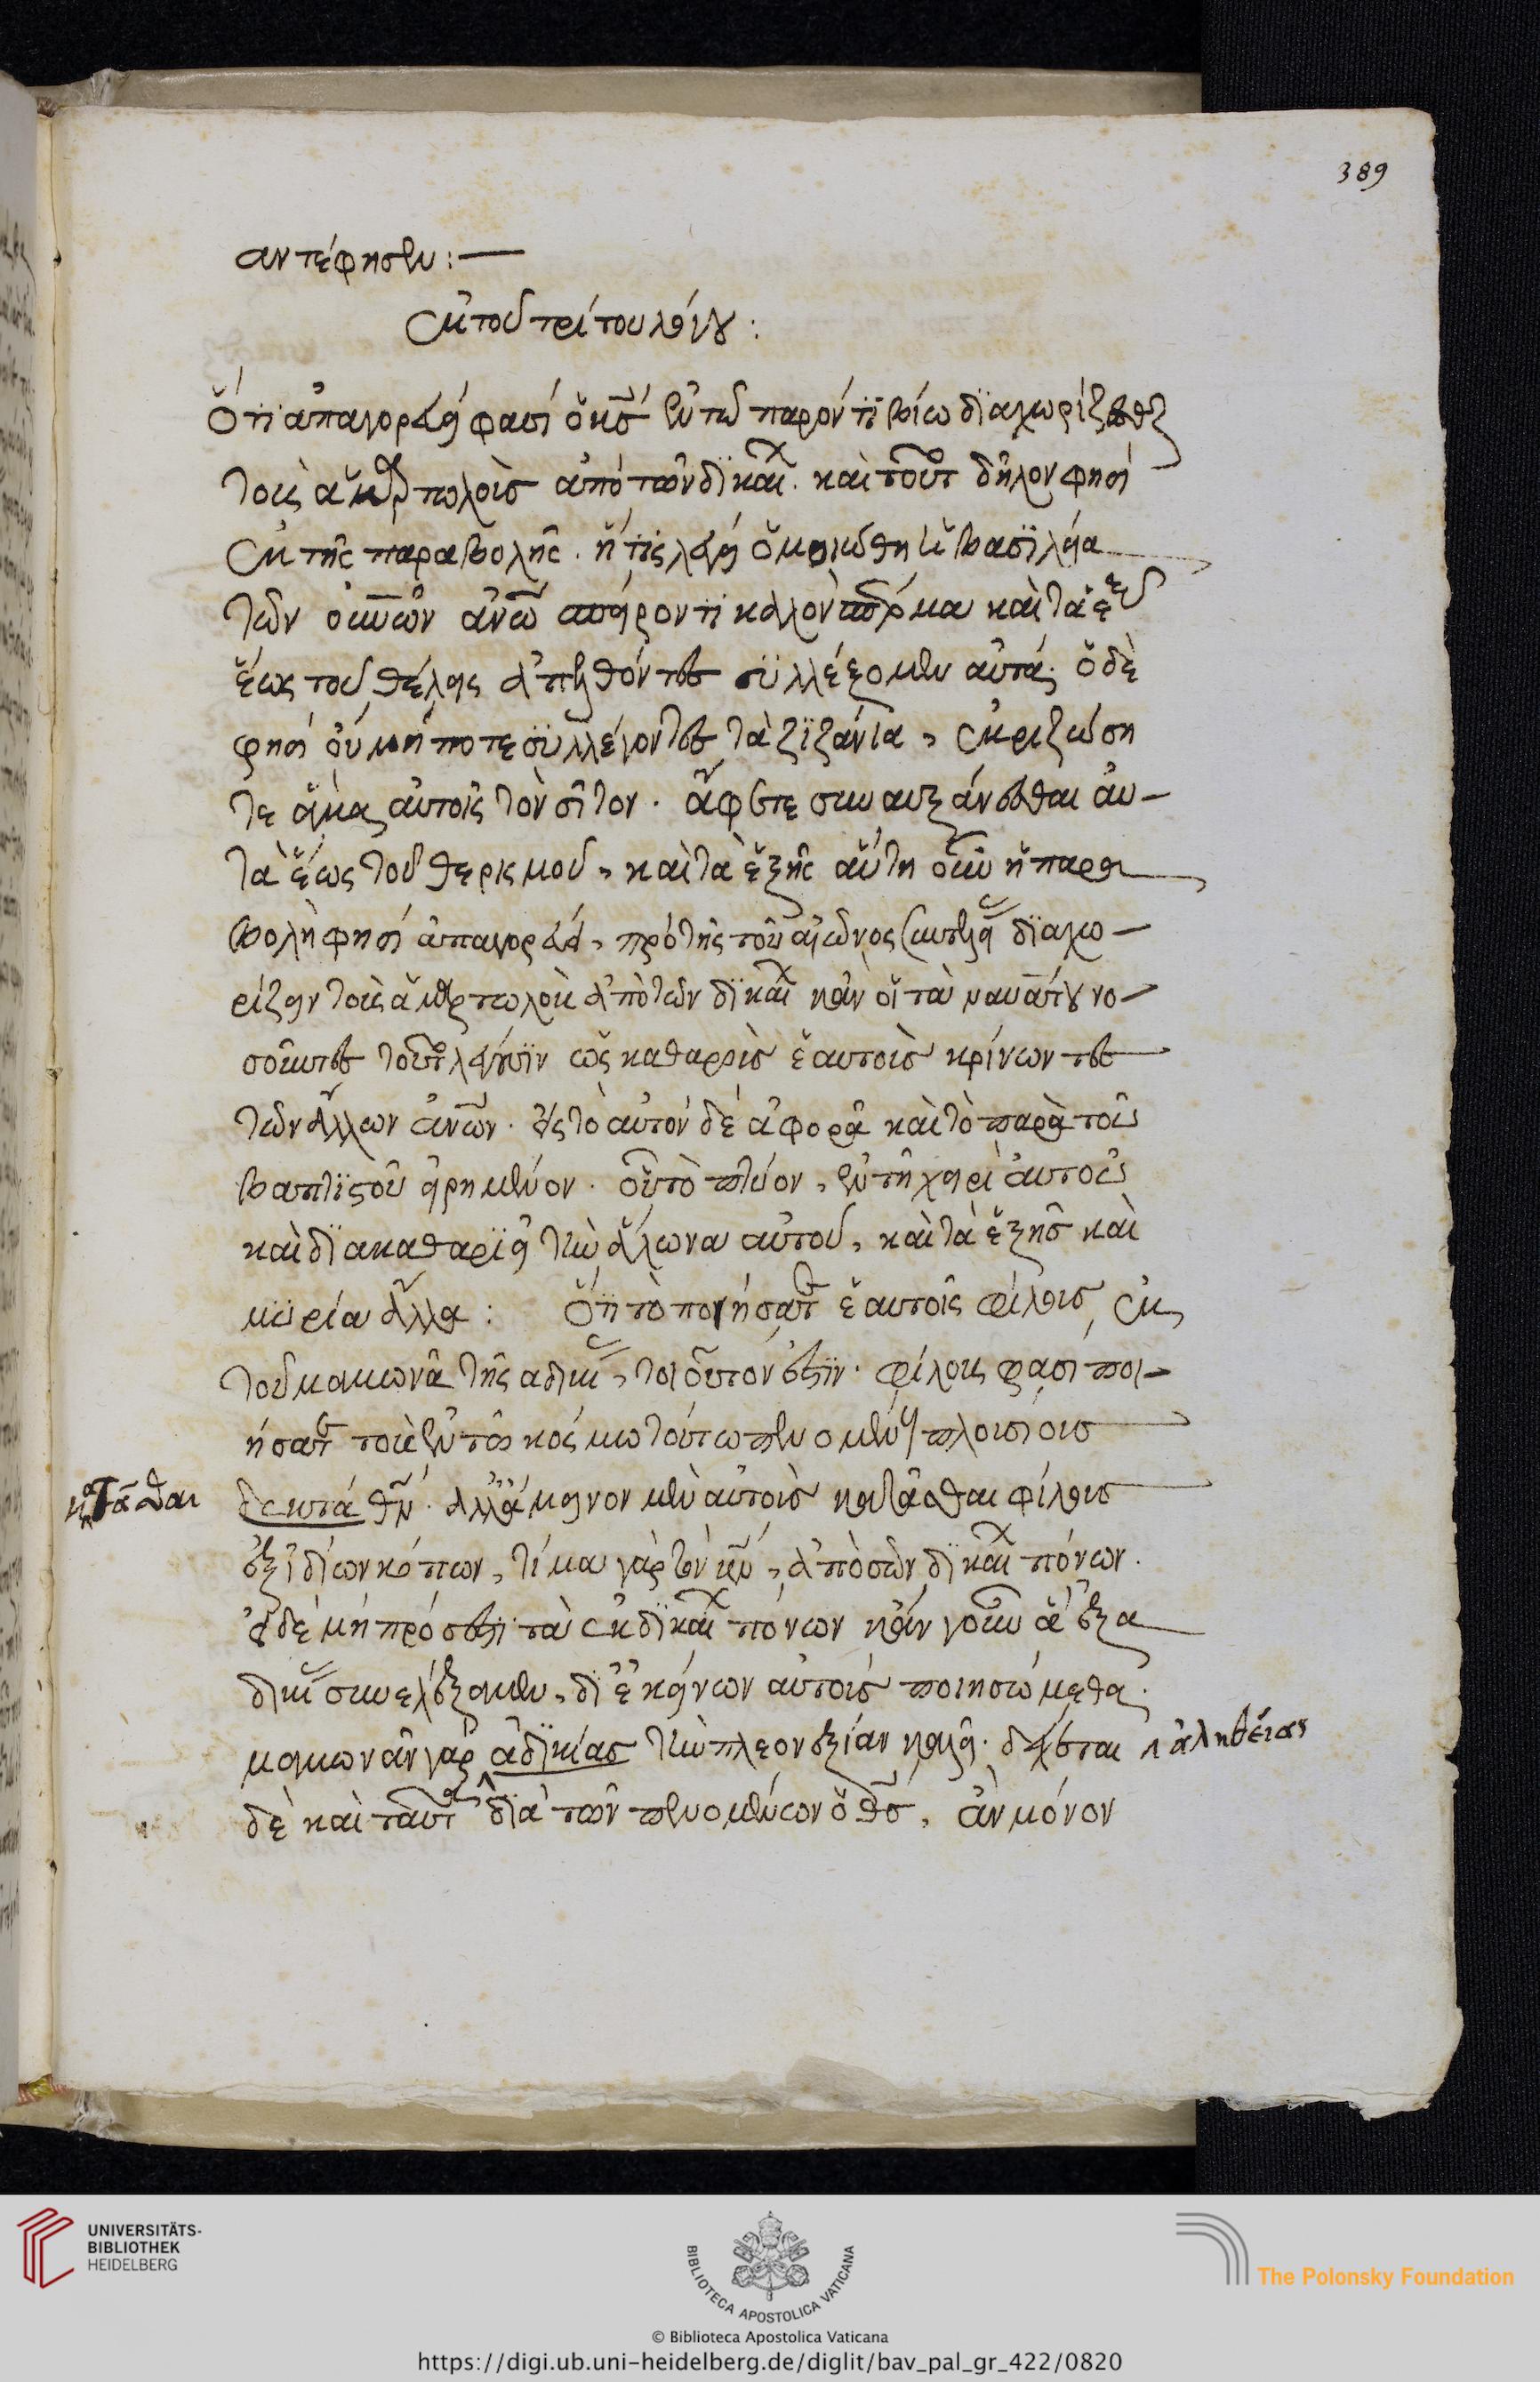 389
αντέφησεν :—
ἐκ τοῦ τρίτου λόγου :
Ὅτι ἀπαγορεύει φασὶ ὁ κς ἐν τῶ παρόντι βίω διαχωρίζεσθαι
τοὺς ἁμαρτωλοὺς ἀπὸ τῶν δικαί. καὶ τοῦτο δῆλον φησὶ
ἐκ τῆς παραβολῆς. ἥτις λέγει ὁμοιώθη ἡ βασιλεία
τῶν οὐνῶν ἀνω σπείροντι καλὸν σπέρμα καὶ τὰ ἑξ
ἕως τοῦ θέλεις ἀπελθόντες συλλέξομεν αὐτά. ὁ δὲ
φησὶ οὐ μήποτε συλλέγοντες τὰ ζιζάνια, ἐκριζώση
τε ἅμα αὐτοῖς τὸν σῖτον. ἄφετε συναυξάνεσθαι αὐ-
τὰ ἕως τοῦ θερισμοῦ, καὶ τὰ ἑξῆς αὕτη οὖν ἡ παρα
βολὴ φησὶ ἀπαγορεύει, πρὸ τῆς τοῦ αἰῶνος συντελεί διαχω-
ρίζειν τοὺς ἁμαρτωλοὺς ἀπὸ τῶν δικαί κἂν οἱ τὰ ναυάτου νο-
σοῦντες τοῦτο λέγουσιν ὡς καθαροὺς ἑαυτοὺς κρίνωντες
τῶν ἄλλων ἀνῶν. εἰς τὸ αὐτὸν δὲ ἀφορᾶ καὶ τὸ παρὰ τοῦ
βαπτιστοῦ εἰρημένον. οὗ τὸ πτύον, ἐν τῆ χειρὶ αὐτοῦ
καὶ διακαθαριεῖ τὴν ἅλωνα αὐτοῦ, καὶ τὰ ἑξῆς καὶ
μυρία ἄλλα : Ὅτι τὸ ποιήσατε ἑαυτοῖς φίλους ἐκ
τοῦ μαμωνᾶ τῆς αδικί, τοιοῦτον ἐστίν. φίλους φασὶ ποι-
ήσατε τοὺς ἐν τῶ κόσμω τούτω πενομένοις πλουσίους
κατᾶσθαι
ἀλλὰ μεῖνον μὲν αὐτοὺς κατᾶσθαι φίλους
ἐξ ἰδίων κόπων, τίμα γὰρ τὸν κν, ἀπὸ σῶν δικαί πόνων.
εἰ δὲ μὴ πρόσεστι τὰ ἐκ δικαί πόνων κἂν γοῦν ἃ ἐξ α
δικί συνελέξαμεν, δι ἐκείνων αὐτοὺς ποιησώμεθα.
μαμωνᾶν γὰρ ἀδικίας τὴν πλεονεξίαν καλεῖ. δέχεται λ ἀληθείας
δὲ καὶ ταῦτα διὰ τῶν πενομένων ὁ θς, ἂν μόνον
UNIVERSITÄTS-
BIBLIOTHEK
HEIDELBERG
BIBLIOTECA APOSTOLICA VATICANA
The Polonsky Foundation
© Biblioteca Apostolica Vaticana
https://digi.ub.uni-heidelberg.de/diglit/bav_pal_gr_422/0820